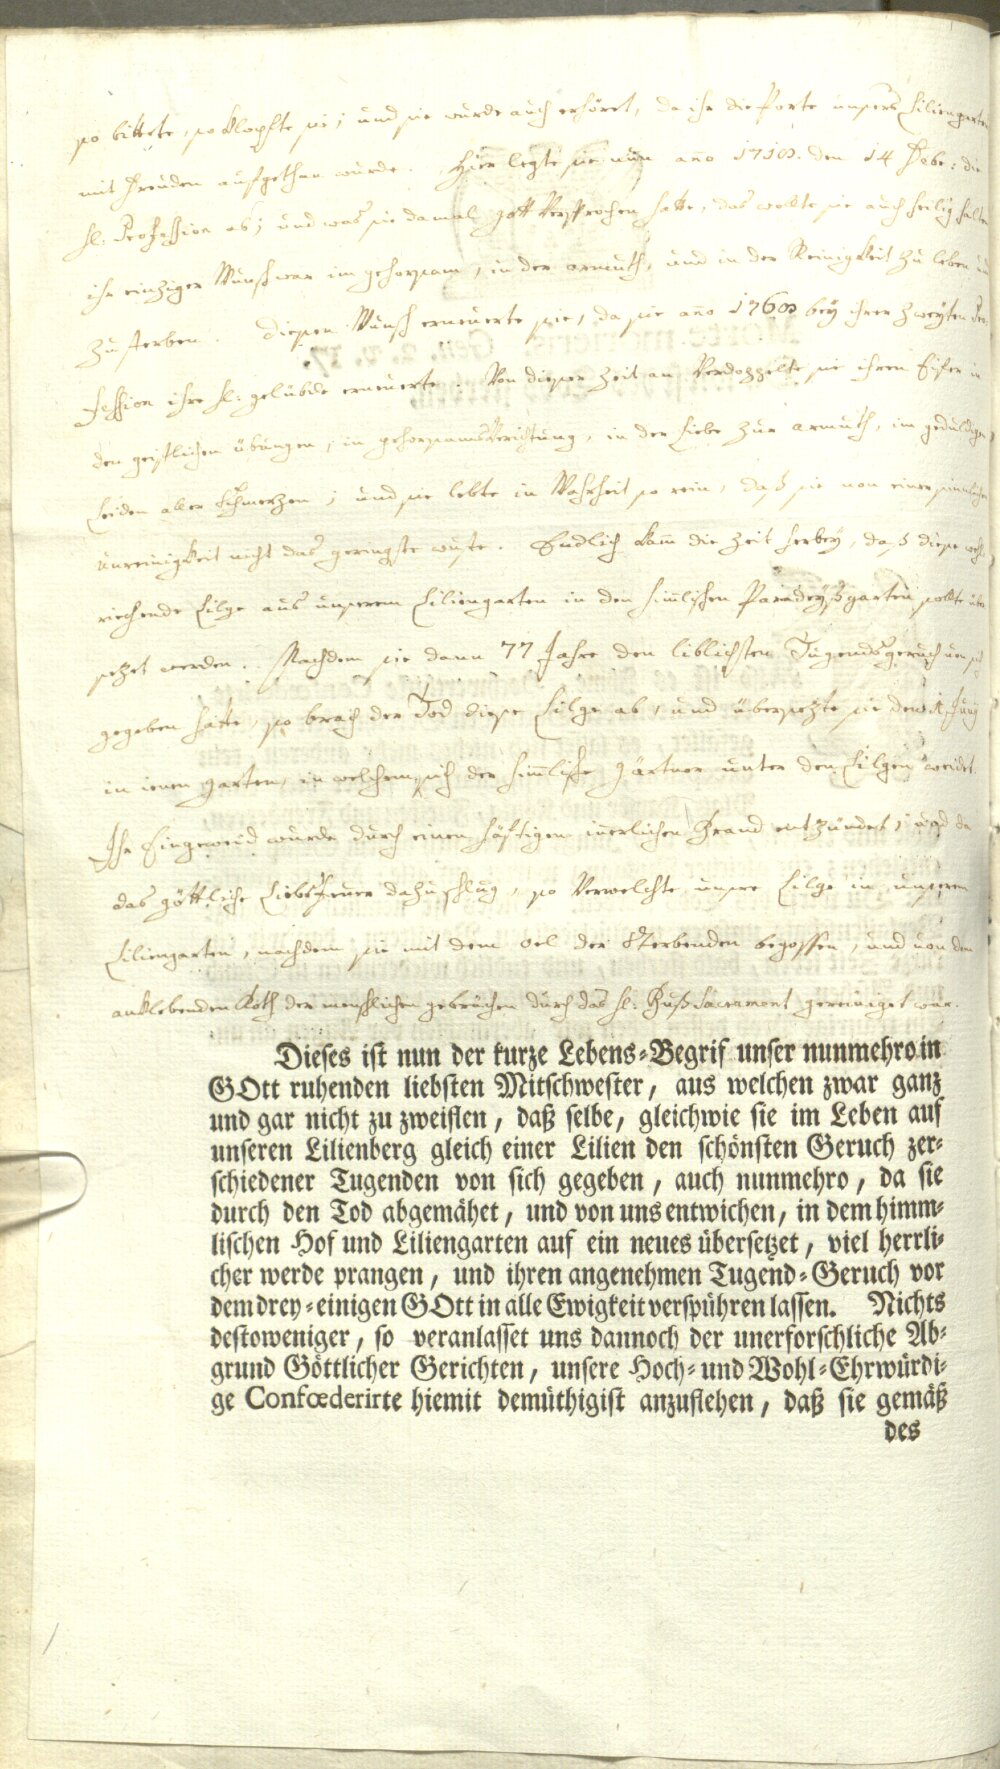 so bittete, so klopfte sie; und sie wurde auch erhöret, da ihr die Porte unsers Liliengarten
mit Freuden aufgethan wurde. Hier legte sie nun año 1718. den 14 Febr: die
hl: Profession ab; und was sie damal Gott Versprochen hatte, das wollte sie auch heilig halten
ihr einziger Wunsch war im gehorsam, in der armuth, und in der Reinigkeit zu leben und
zu sterben. diesen Wunsch erneuerte sie, da sie año 1768 bey ihrer zweyten Pro-
fession ihre hl: gelübde erneuerte. Von dieser Zeit an Verdoppelte sie ihren Eifer in
den geistlichen übungen, in gehorsams Verichtung, in der Liebe zur armuth, im geduldigen
Leiden aller Schmerzen; und sie lebte in Wahrheit so rein, daß sie von einer sinnlichen
Unreinigkeit nicht das geringste wuste. Endlich kam̃ die Zeit herbey, daß diese wohl
riechende Lilge aus unserem Liliengarten in den him̃lischen Paradeyßgarten sollte über
setzet werden. Nachdem sie dann 77 Jahre den liblichsten Tugendsgeruch von sich
gegeben hatte, so brach der Tod diese Lilge ab, und übersezte sie den Junij
in jenen garten, in welchem sich der him̃lische Gärtner unter den Lilgen weidet.
Ihr Eingeweid wurde durch einen häftigen inerlichen Brand entzündet; und da
das göttliche Liebsfeuer dazu schlug, so Verwelchte unsre Lilge in unserem
Liliengarten, nachdem sie mit dem oel der Sterbenden begossen, und von dem
anklebenden Koth der menschlichen gebrechen durch das hl: Buß Sacrament gereiniget war.
Dieses ist nun der kurze Lebens=Begrif unser nunmehro in
GOtt ruhenden liebsten Mitschwester, aus welchen zwar ganz
und gar nicht zu zweiflen, daß selbe, gleichwie sie im Leben auf
unseren Lilienberg gleich einer Lilien den schönsten Geruch zer=
schiedener Tugenden von sich gegeben, auch nunmehro, da sie
durch den Tod abgemähet, und von uns entwichen, in dem himm=
lischen Hof und Liliengarten auf ein neues übersetzet, viel herrli=
cher werde prangen, und ihren angenehmen Tugend=Geruch vor
dem drey=einigen GOtt in alle Ewigkeit verspühren lassen. Nichts
destoweniger, so veranlasset uns dannoch der unerforschliche Ab=
grund Göttlicher Gerichten, unsere Hoch= und Wohl=Ehrwürdi=
ge Confœderirte hiemit demüthigist anzuflehen, daß sie gemäß
des